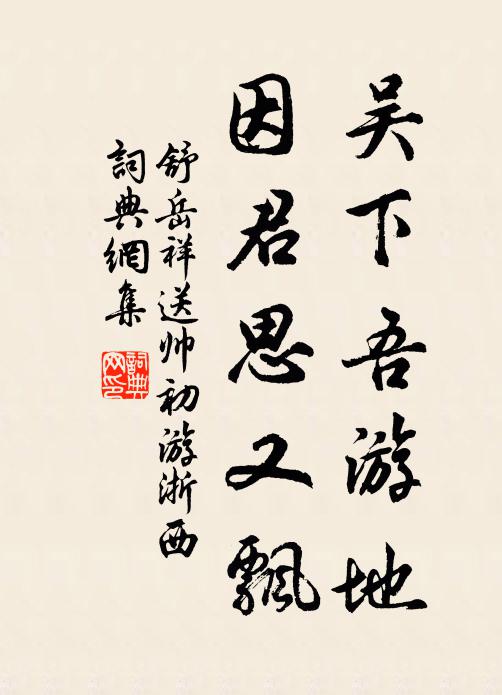 吴下吾游地
因君思又飘
舒岳祥送帅初游浙西
詞典網集
詞典网印